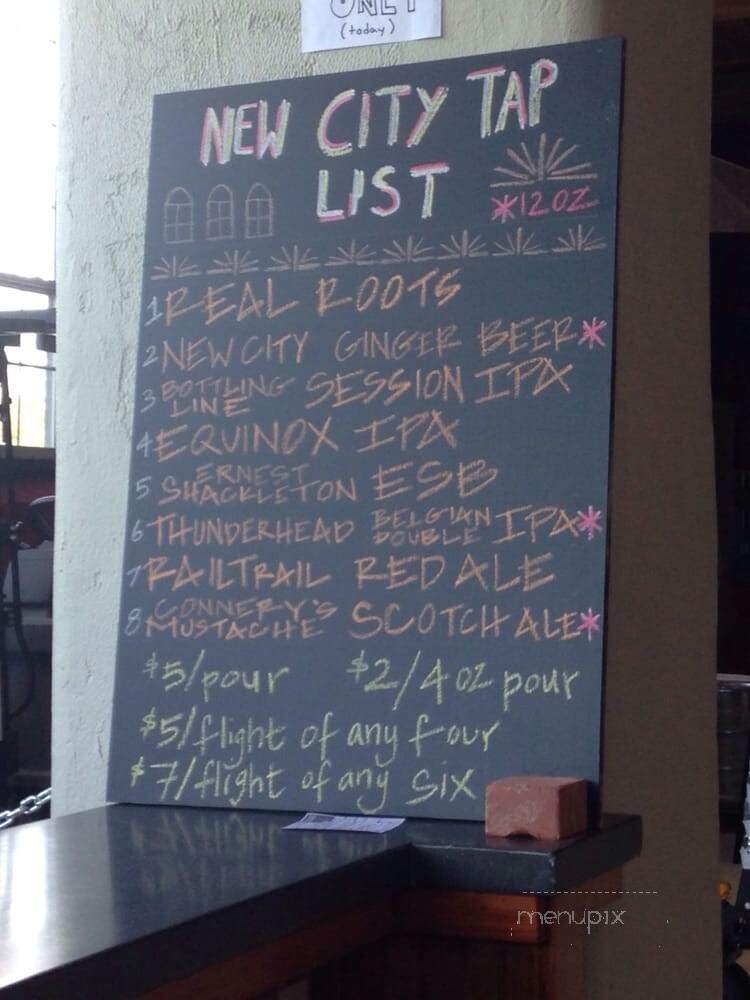 ONLY
(today)
NEW CITY TAP
LIST
*12OZ
1 REAL ROOTS
2 NEW CITY GINGER BEER*
3 BOTTLING LINE SESSION IPA
4 EQUINOX IPA
5 ERNEST SHACKLETON ESB
6 THUNDERHEAD BELGIAN DOUBLE IPA*
7 RAILTRAIL RED ALE
8 CONNERY'S MUSTACHE SCOTCH ALE*
$5/pour $2/4oz pour
$5/flight of any four
$7/flight of any six
menupix